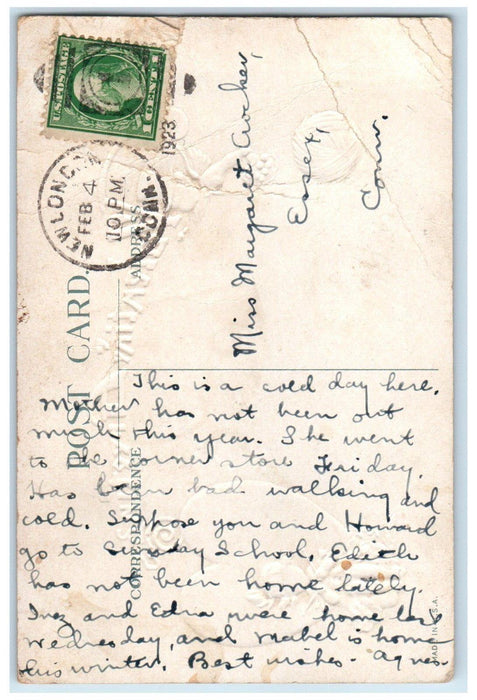 U.S. POSTAGE
1 CENT 1
NEW LONDON
FEB 4
10 PM
CONN.
1923
POST CARD.
ADDRESS
CORRESPONDENCE
Miss Margaret
Essex,
Conn.
This is a cold day here.
Mother has not been out
much this year. She went
to the corner store Friday.
Has been bad walking and
cold. Suppose you and Howard
go to Sunday School. Edith
has not been home lately.
Inez and Edna were home last
Wednesday, and Mabel is home
this winter. Best wishes - Agnes.
MADE IN U.S.A.